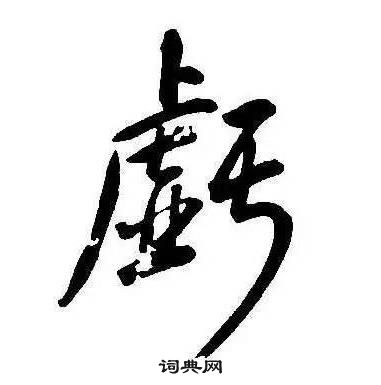 虧
词典网